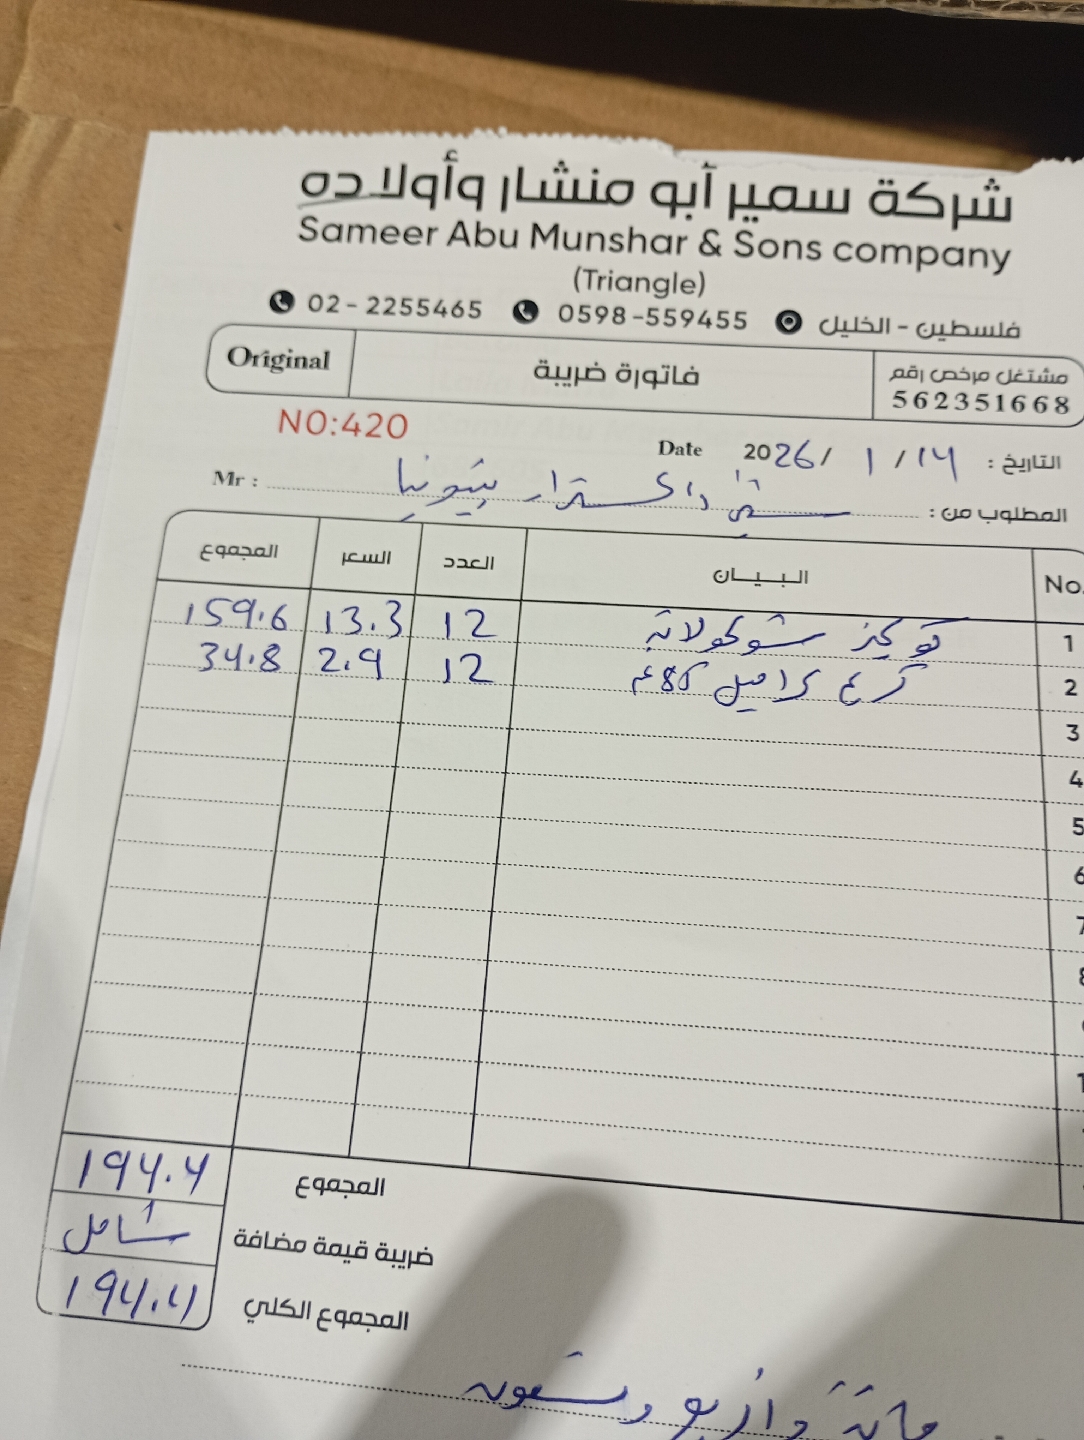 شركة سمير أبو منشار وأولاده
Sameer Abu Munshar & Sons company
(Triangle)
02-2255465 0598-559455 فلسطين - الخليل
مشتغل مرخص رقم 562351668 فاتورة ضريبة Original
NO:420
التاريخ: 14 / 1 / 2026 Date
المطلوب من: Mr :
No. البيــان العدد السعر المجموع
1 شوكولاتة 12 13.3 159.6
2 كراميل 86غم 12 2.9 34.8
3
4
5
6
7
8
المجموع 194.4
ضريبة قيمة مضافة شامل
المجموع الكلي 194.4
مائة واربع وتسعون